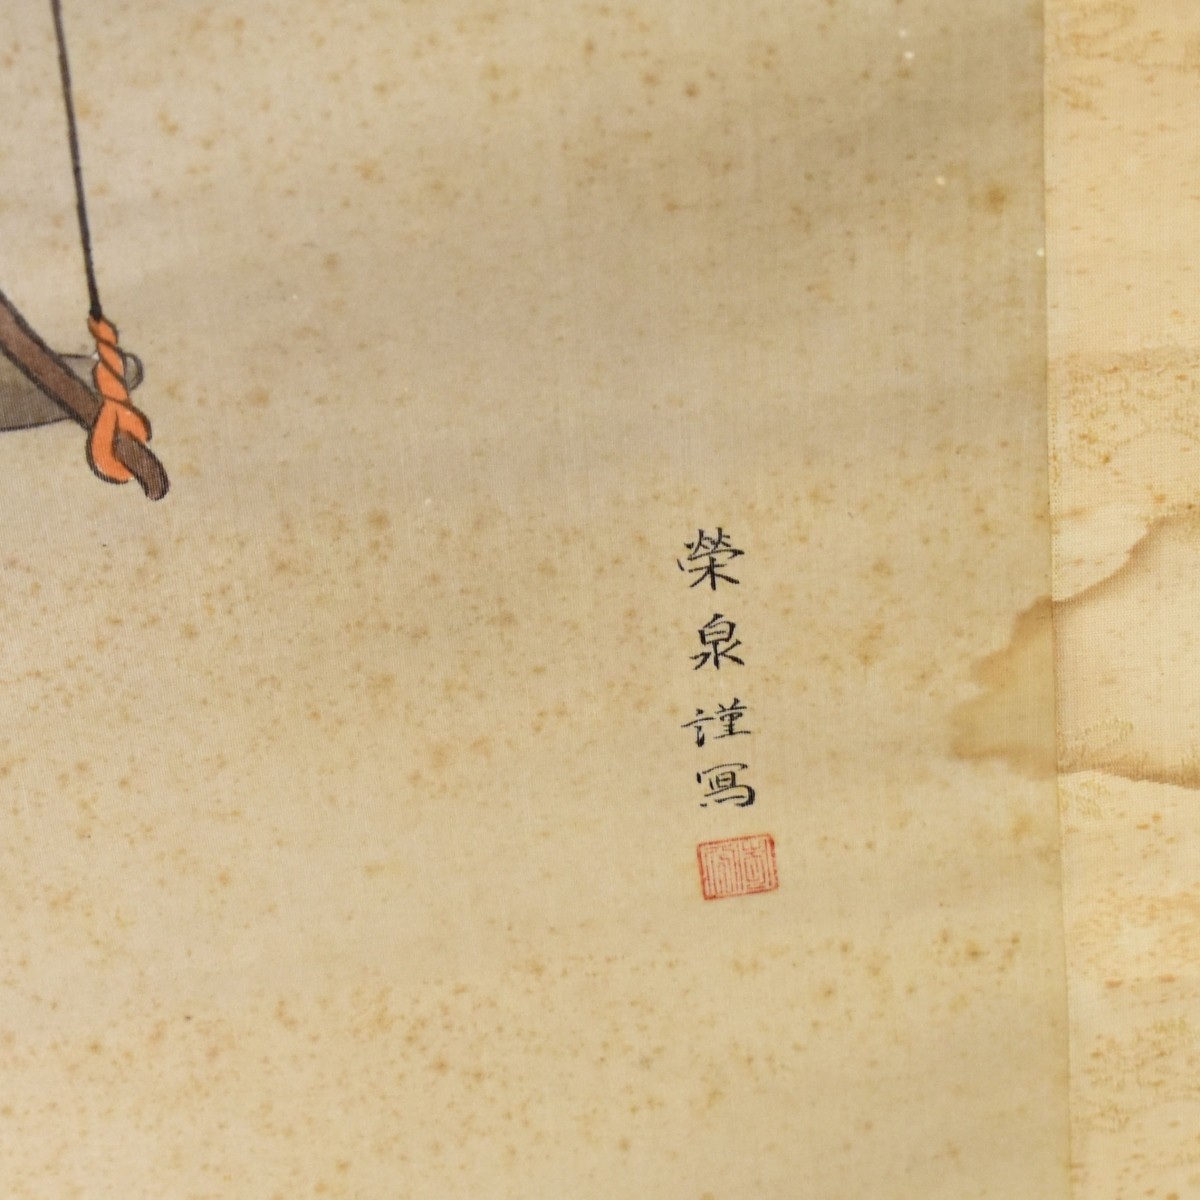 榮泉謹寫